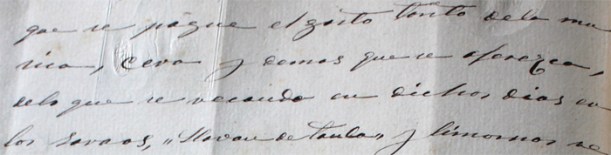 que se pague el gasto tanto de la mu
sica, cera y demas que se ofrezca,
delo que se recauda en dichos dias en
los saraos, "Llevan de tanda" y limosnas se